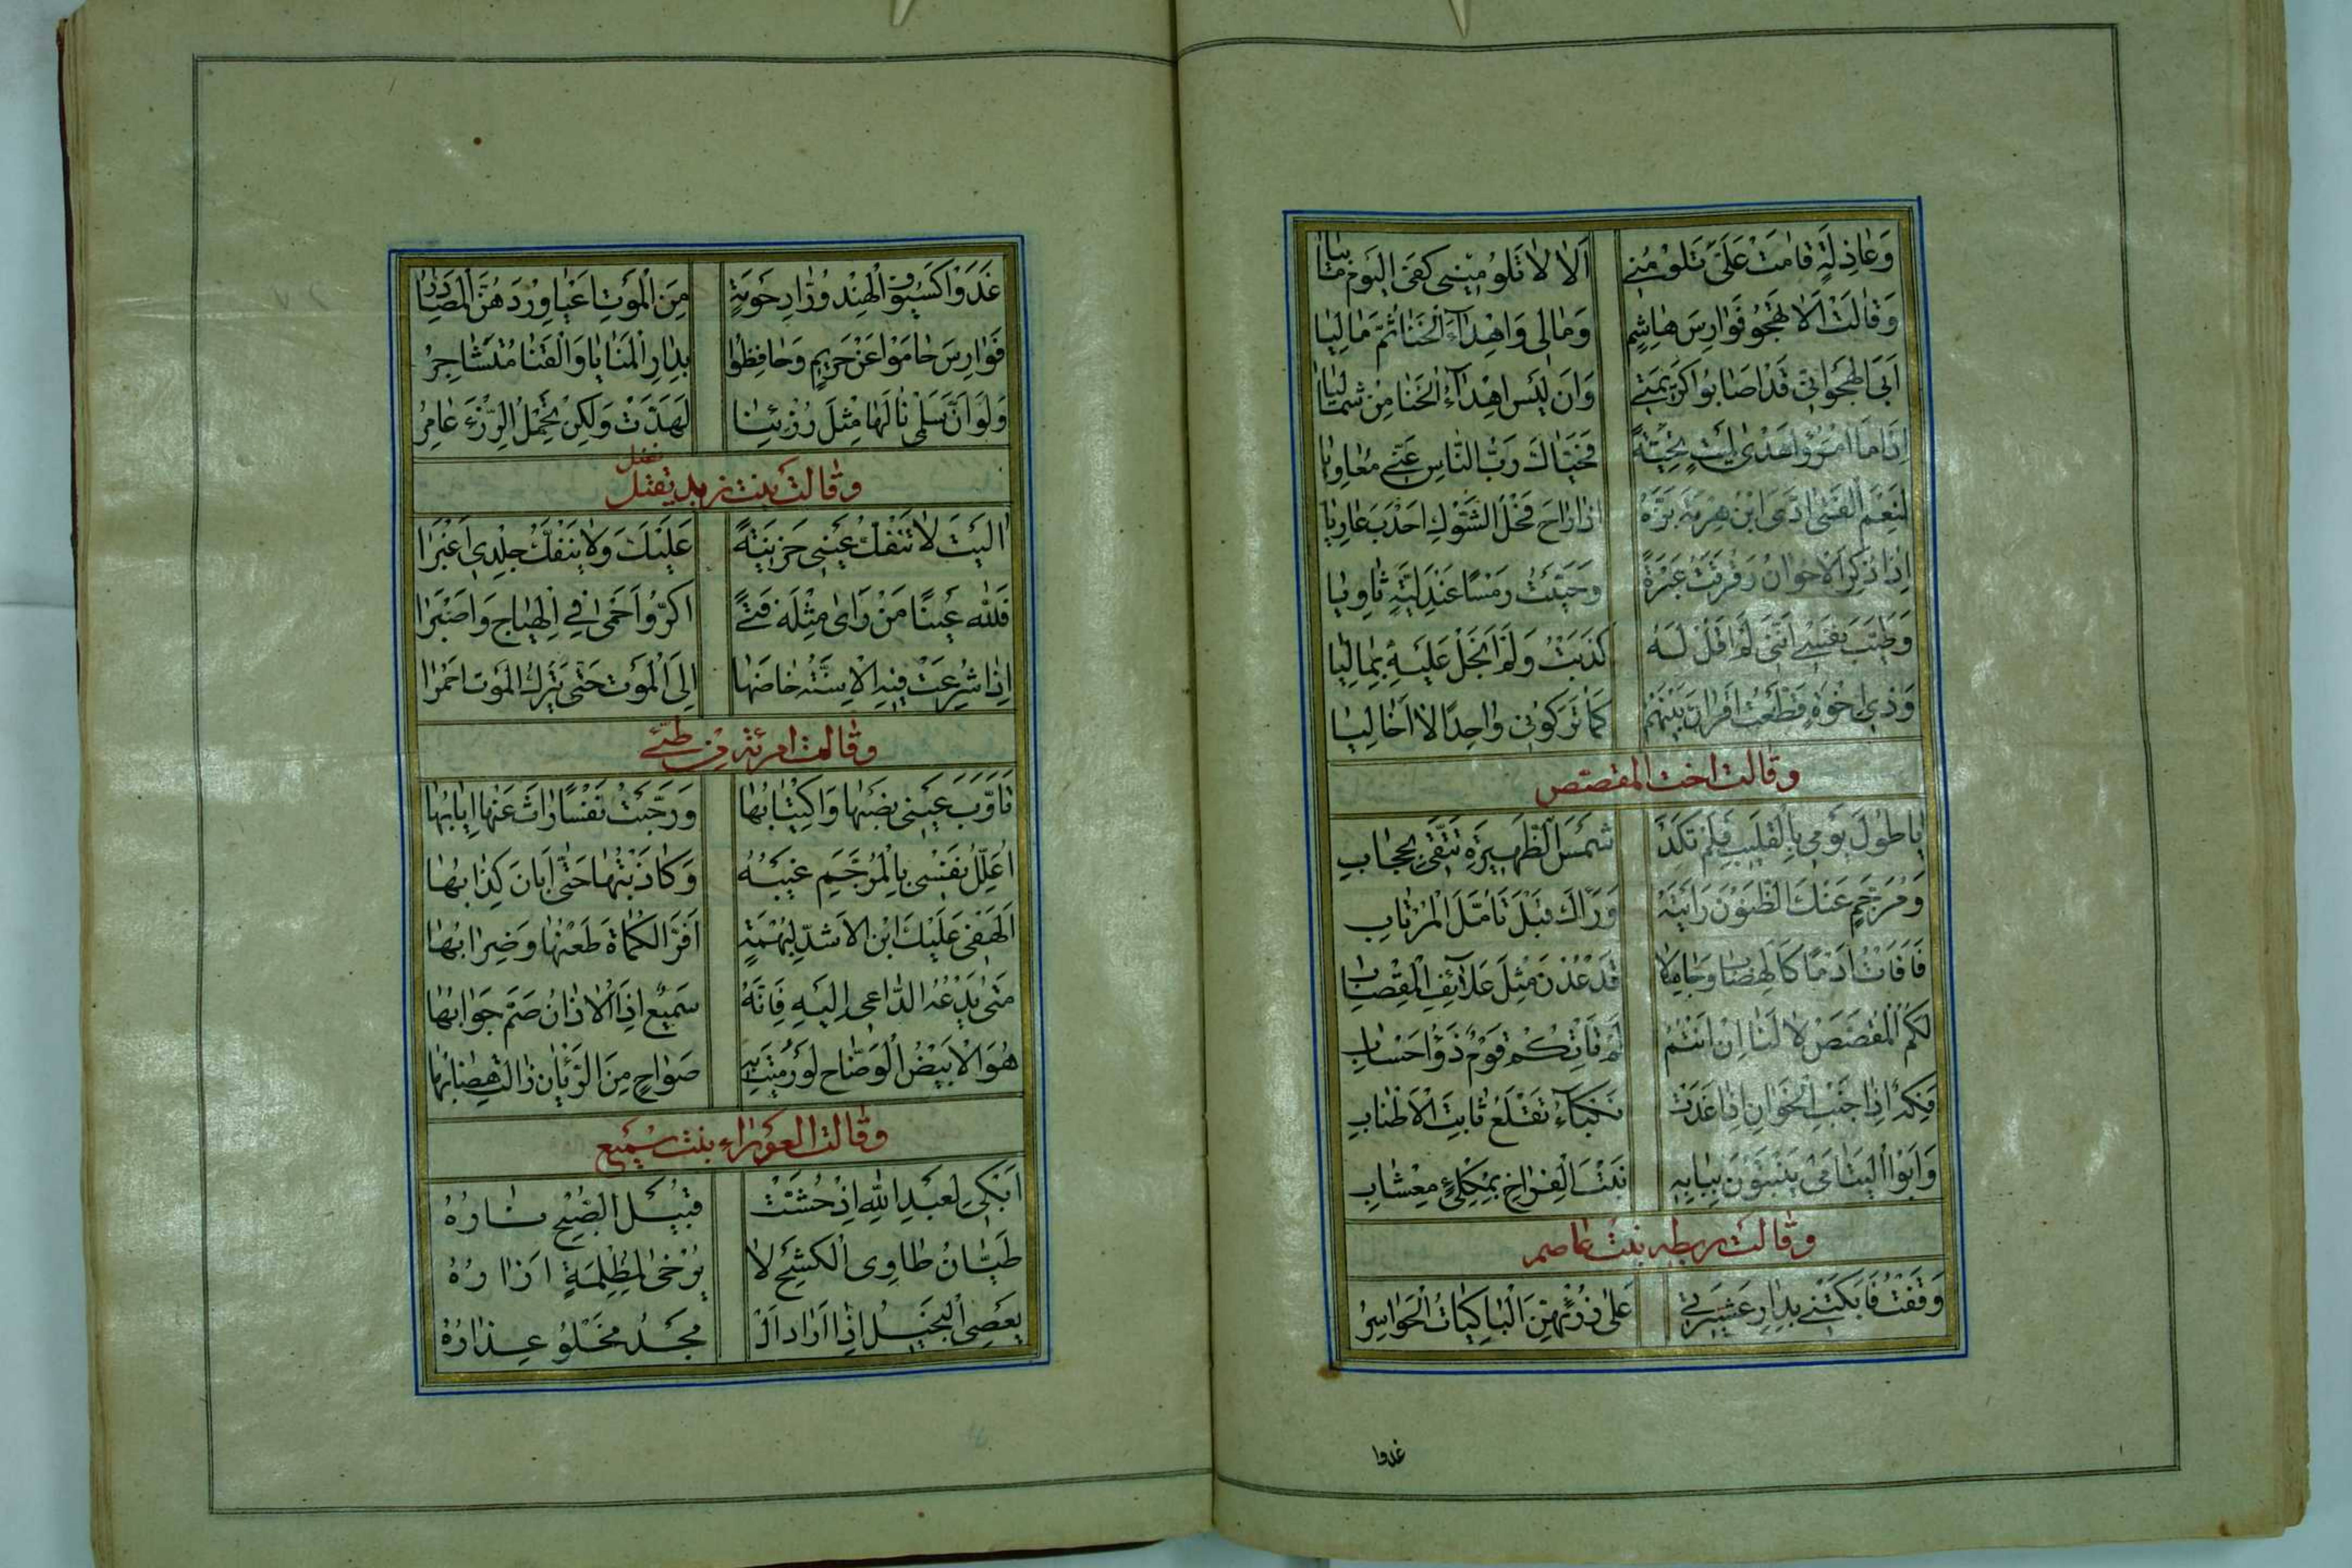 وَعَاذِلَةٍ قَامَتْ عَلَیَّ تَلُومُنِی اَلَا لَا تَلُومِینِی کَفَی الْیَوْمَ مَابِیَا
وَقَالَتْ اَلَا تَهْجُو فَوَارِسَ هَاشِمٍ وَمَالِی وَاِهْدَاءَ الْخَنَا ثُمَّ مَالِیَا
اَبَی الْهَجْوَ اَنِّی قَدْ اَصَابُوا کَرِیمَتِی وَاَنْ لَیْسَ اِهْدَاءُ الْخَنَا مِنْ شِمَالِیَا
اِذَا مَا امْرُؤٌ اَهْدَی لِمَیْتٍ تَحِیَّةً فَحَیَّاكَ رَبُّ النَّاسِ عَنِّی مُعَاوِیَا
لَنِعْمَ الْفَتَی اَدَّی ابْنُ هِرْمَةَ بَزَّهُ اِذَا رَاحَ فَحْلُ الشَّوْلِ اَحْدَبَ عَارِیَا
اِذَا ذُکِرَ الْاِخْوَانُ رَقْرَقْتُ عَبْرَةً وَحَیَّیْتُ رَمْسًا عِنْدَ لِیَّةَ ثَاوِیَا
وَطَیَّبَ نَفْسِی اَنَّنِی لَمْ اَقُلْ لَهُ کَذَبْتَ وَلَمْ اَبْخَلْ عَلَیْهِ بِمَالِیَا
وَذِی اِخْوَةٍ قَطَّعْتُ اَقْرَانَ بَیْنِهِمْ کَمَا تَرَکُونِی وَاحِدًا لَا اَخَا لِیَا
وقالت اخت المقصّص
یَا طُولَ یَوْمِی بِالْقَلِیبِ فَلَمْ تَکَدْ شَمْسُ الظَّهِیرَةِ تُتَّقَی بِحِجَابِ
وَمُرَجِّمٍ عَنْكَ الظُّنُونَ رَاَیْتَهُ وَرَآكَ قَبْلَ تَاَمُّلِ الْمُرْتَابِ
فَاَفَاْتَ اُدْمًا کَالْهِضَابِ وَجَامِلًا قَدْ عُدْنَ مِثْلَ عَلَائِفِ الْمِقْضَابِ
لَکُمُ الْمُقَصَّصُ لَا لَنَا اِنْ اَنْتُمُ لَمْ یَاْتِکُمْ قَوْمٌ ذَوُو اَحْسَابِ
فَکِهٌ اِلَی جَنْبِ الْخِوَانِ اِذَا غَدَتْ نَکْبَاءُ تَقْلَعُ ثَابِتَ الْاَطْنَابِ
وَاَبُو الْیَتَامَی یَنْبُتُونَ بِبَابِهِ نَبْتَ الْفِرَاخِ بِمُکْلِئٍ مِعْشَابِ
وقالت ریطه بنت عاصم
وَقَفْتُ فَاَبْکَتْنِی بِدَارِ عَشِیرَتِی عَلَی رُزْئِهِنَّ الْبَاکِیَاتُ الْحَوَاسِرُ
غدوا
غَدَوْا کَسُیُوفِ الْهِنْدِ وُرَّادَ حَوْمَةٍ مِنَ الْمَوْتِ اَعْیَا وِرْدَهُنَّ الْمَصَادِرُ
فَوَارِسُ حَامَوْا عَنْ حَرِیمٍ وَحَافَظُوا بِدَارِ الْمَنَایَا وَالْقَنَا مُتَشَاجِرُ
وَلَوْ اَنَّ سَلْمَی نَالَهَا مِثْلُ رُزْئِنَا لَهُدَّتْ وَلَکِنْ تَحْمِلُ الرُّزْءَ عَامِرُ
وقالت بنت زید تفتل
اٰلَیْتُ لَا تَنْفَكُّ عَیْنِی حَزِینَةً عَلَیْكَ وَلَا یَنْفَكُّ جِلْدِی اَغْبَرَا
فَلِلّٰهِ عَیْنًا مَنْ رَاٰی مِثْلَهُ فَتًی اَکَرَّ وَاَحْمَی فِی الْهِیَاجِ وَاَصْبَرَا
اِذَا شُرِعَتْ فِیهِ الْاَسِنَّةُ خَاضَهَا اِلَی الْمَوْتِ حَتَّی یَتْرُكَ الْمَوْتَ اَحْمَرَا
وقالت امرئة من طیّئ
تَاَوَّبَ عَیْنِی نَصْبُهَا وَاکْتِیَابُهَا وَرَجَّیْتُ نَفْسًا رَاثَ عَنْهَا اِیَابُهَا
اُعَلِّلُ نَفْسِی بِالْمُرَجَّمِ غَیْبُهُ وَکَاذَبْتُهَا حَتَّی اَبَانَ کِذَابُهَا
اَلَهْفِی عَلَیْكَ ابْنَ الْاَشَدِّ لِبُهْمَةٍ اَفَرَّ الْکُمَاةَ طَعْنُهَا وَضِرَابُهَا
مَتَی یَدْعُهُ الدَّاعِی اِلَیْهِ فَاِنَّهُ سَمِیعٌ اِذَا الْاٰذَانُ صَمَّ جَوَابُهَا
هُوَ الْاَبْیَضُ الْوَضَّاحُ لَوْ رُمِیَتْ بِهِ ضَوَاحٍ مِنَ الرَّیَّانِ زَالَتْ هِضَابُهَا
وقالت العوراء بنت سُبَیع
اَبْکِی لِعَبْدِ اللّٰهِ اِذْ حُشَّتْ قُبَیْلَ الصُّبْحِ نَارُهُ
طَیَّانُ طَاوِی الْکَشْحِ لَا یُرْخَی لِمُظْلِمَةٍ اِزَارُهُ
یَعْصِی الْبَخِیلَ اِذَا اَرَادَ الْ مَجْدَ مَخْلُوعٌ عِذَارُهُ